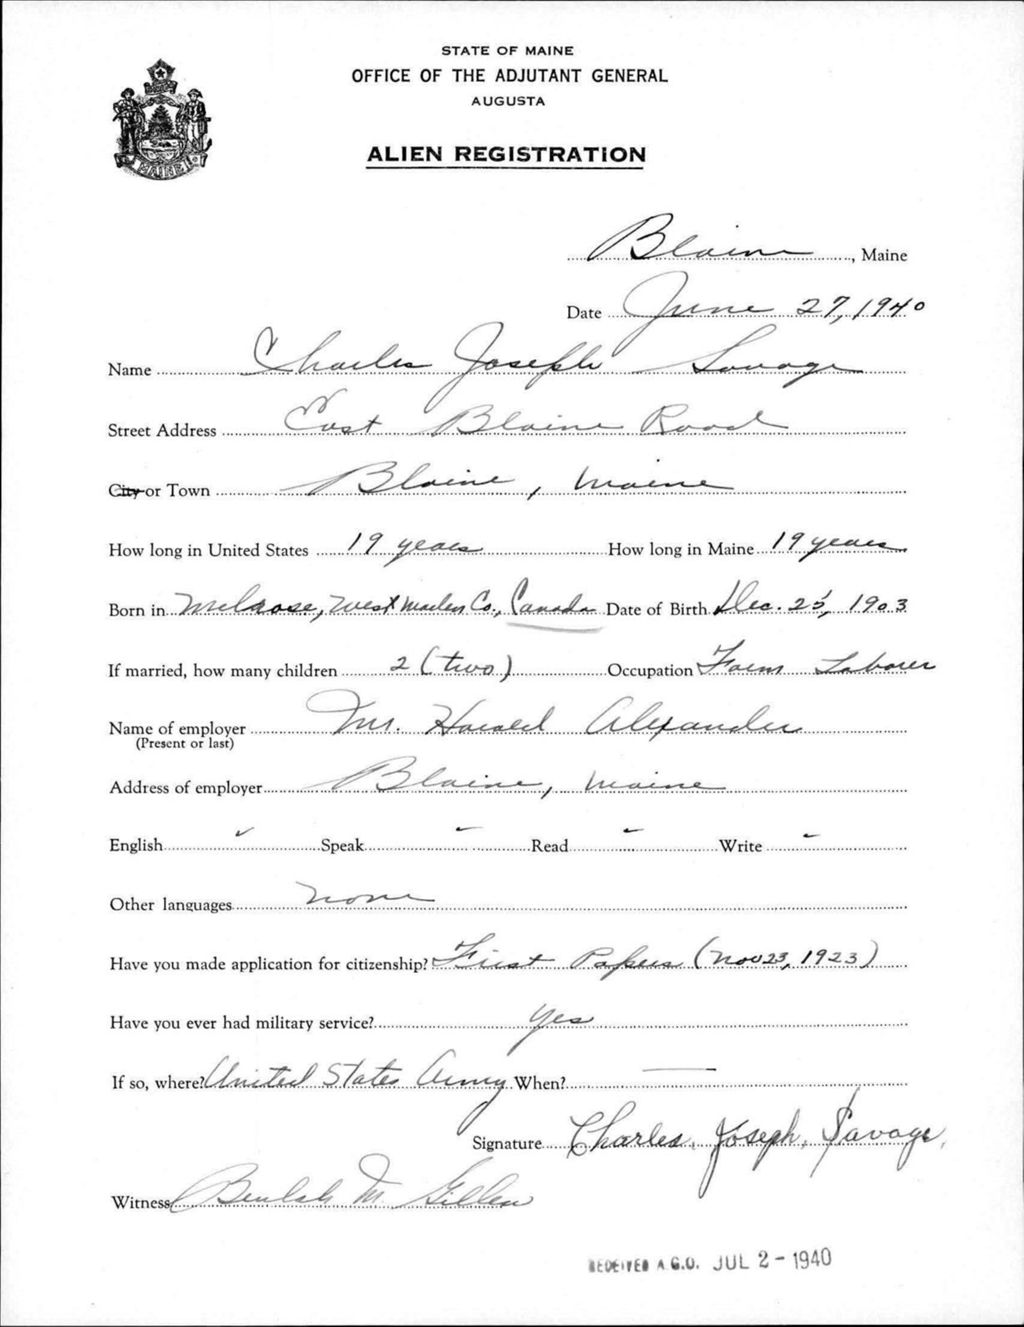 STATE OF MAINE
OFFICE OF THE ADJUTANT GENERAL
AUGUSTA
ALIEN REGISTRATION
MAINE
Blaine, Maine
Date June 27, 1940
Name Charles Joseph Savage
Street Address East Blaine Road
City or Town Blaine, Maine
How long in United States 19 years How long in Maine 19 years
Born in Melrose, West Co., Canada Date of Birth Dec. 25, 1903
If married, how many children 2 (two) Occupation Farm Laborer
Name of employer Mr. Harold Alexander
(Present or last)
Address of employer Blaine, Maine
English ✓ Speak ✓ Read ✓ Write ✓
Other languages none
Have you made application for citizenship? First Papers (Nov 23, 1923)
Have you ever had military service? yes
If so, where? United States Army When? —
Signature Charles Joseph Savage
Witness Beulah M. Gillen
RECEIVED A.G.O. JUL 2 - 1940